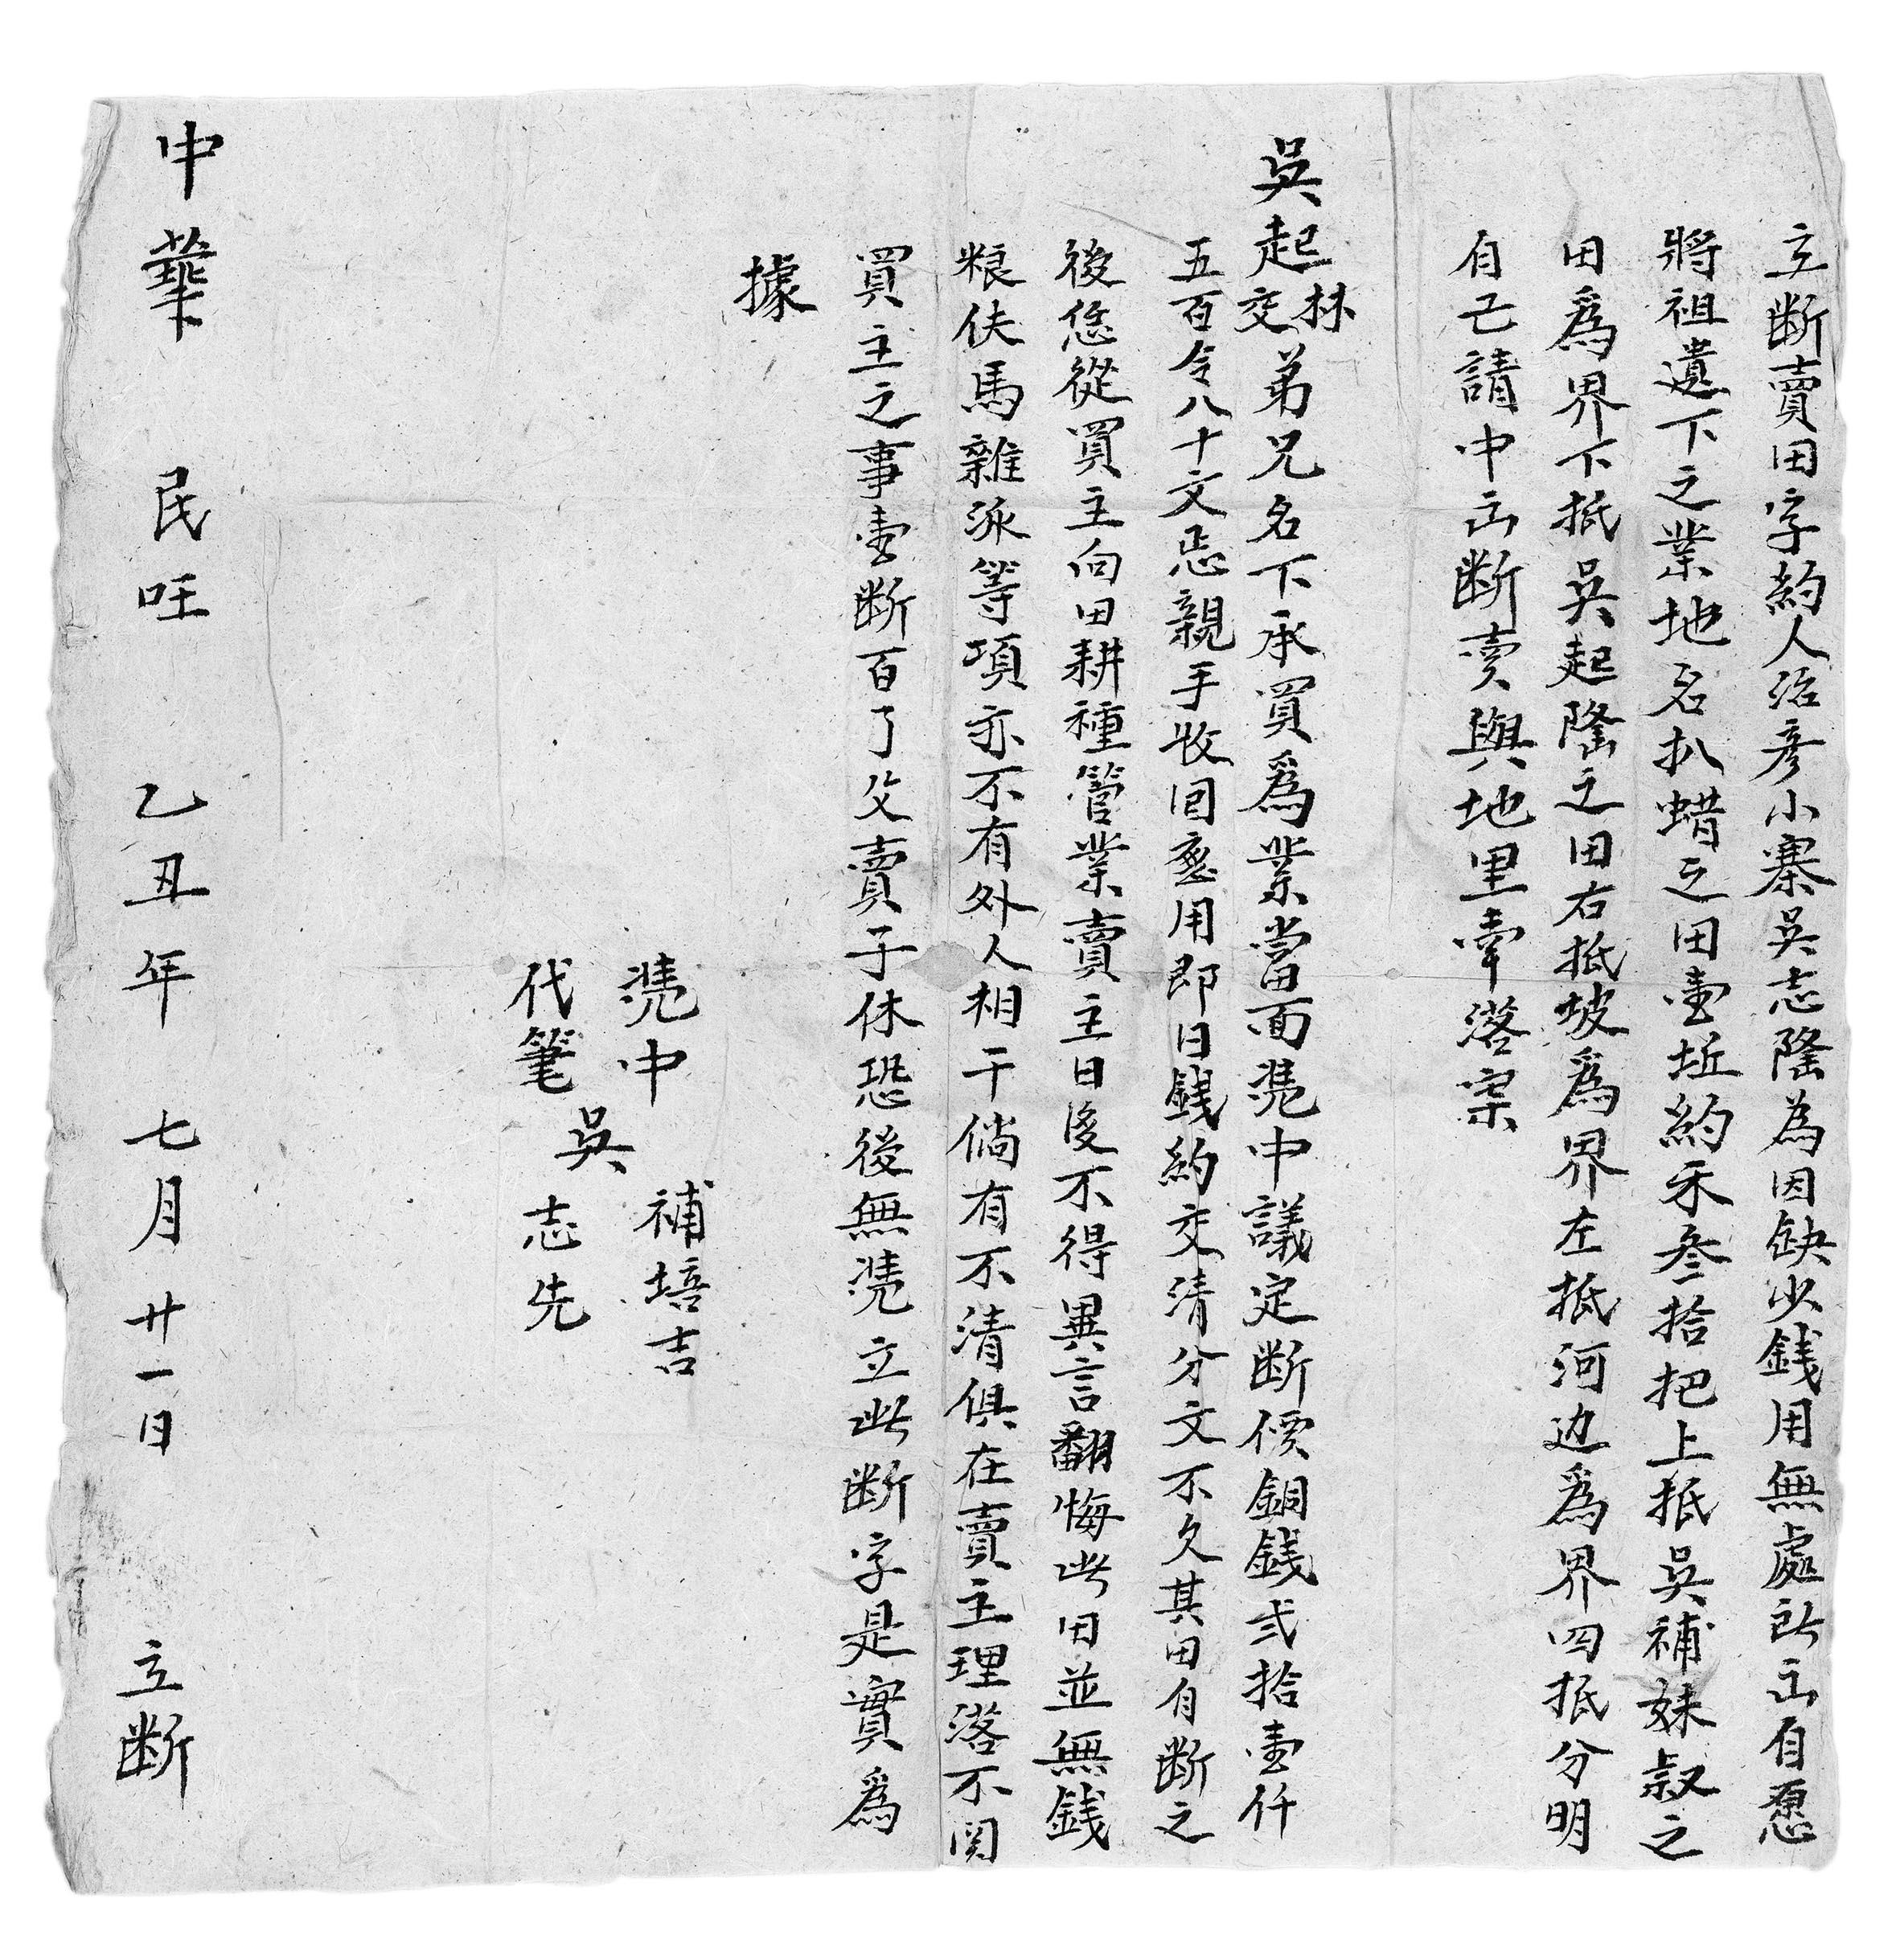 立断賣田字約人治彦小寨吳志隆為因缺少銭用無處所出自愿
將祖遺下之業地名扒蜡之田壹坵約禾叁拾把上抵吳補妹叔之
田爲界下抵吳起隆之田右抵坡爲界左抵河边爲界四抵分明
自己請中出断賣與地里牽落寀
吳起林交弟兄名下承買爲業當面凴中議定断價銅銭弍拾壹仟
五百令八十文忌親手收回應用即日銭約交清分文不久其田自断之
後恁從買主向田耕種管業賣主日後不得異言翻悔此田並無銭
粮伕馬雜派等項亦不有外人相干倘有不清俱在賣主理落不関
買主之事壹断百了父賣子休恐後無凴立此断字是實爲
據
凴中 補培吉
吳
代筆 志先
中華民旺乙丑年七月廿一日立断